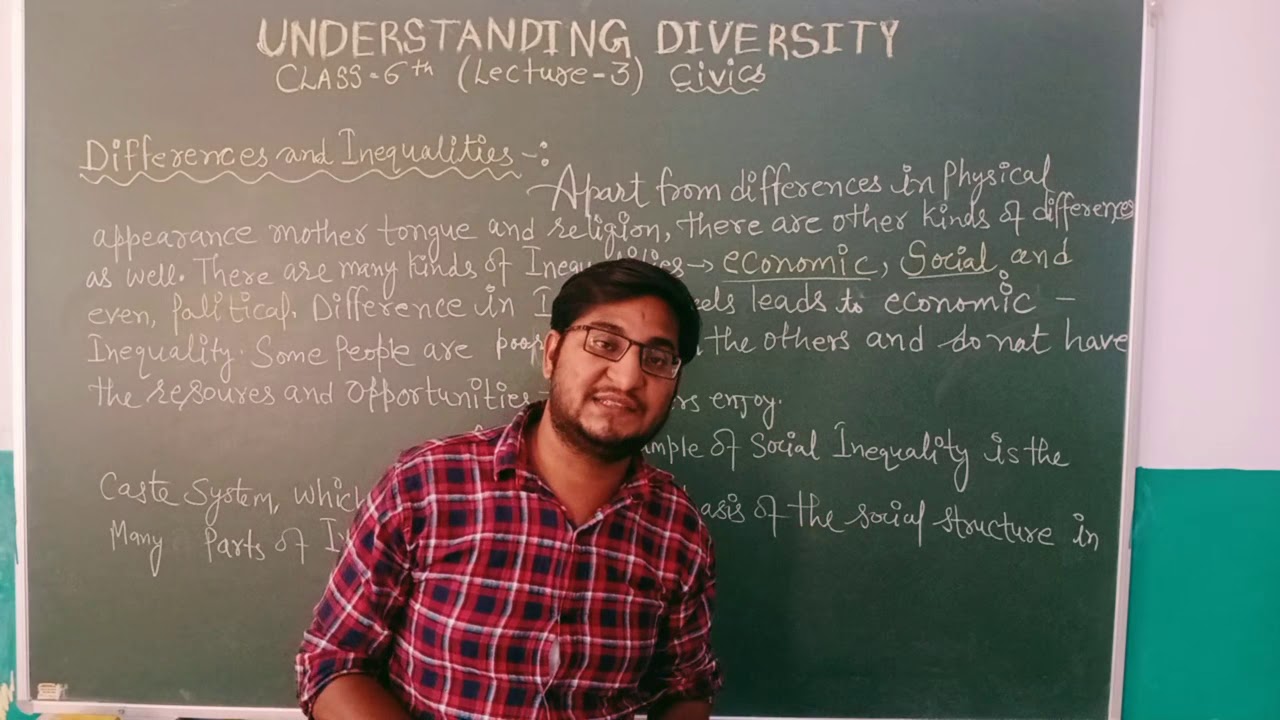 UNDERSTANDING DIVERSITY
CLASS-6th (Lecture-3) Civics
Differences and Inequalities -:
Apart from differences in Physical
appearance mother tongue and religion, there are other kinds of differences
as well. There are many kinds of Inequalities → economic, Social, and
even, political. Difference in I els leads to economic -
Inequality. Some People are poor the others and do not have
the resoures and Opportunities rs enjoy.
mple of Social Inequality is the
Caste System, whic asis of the social structure in
Many Parts of I